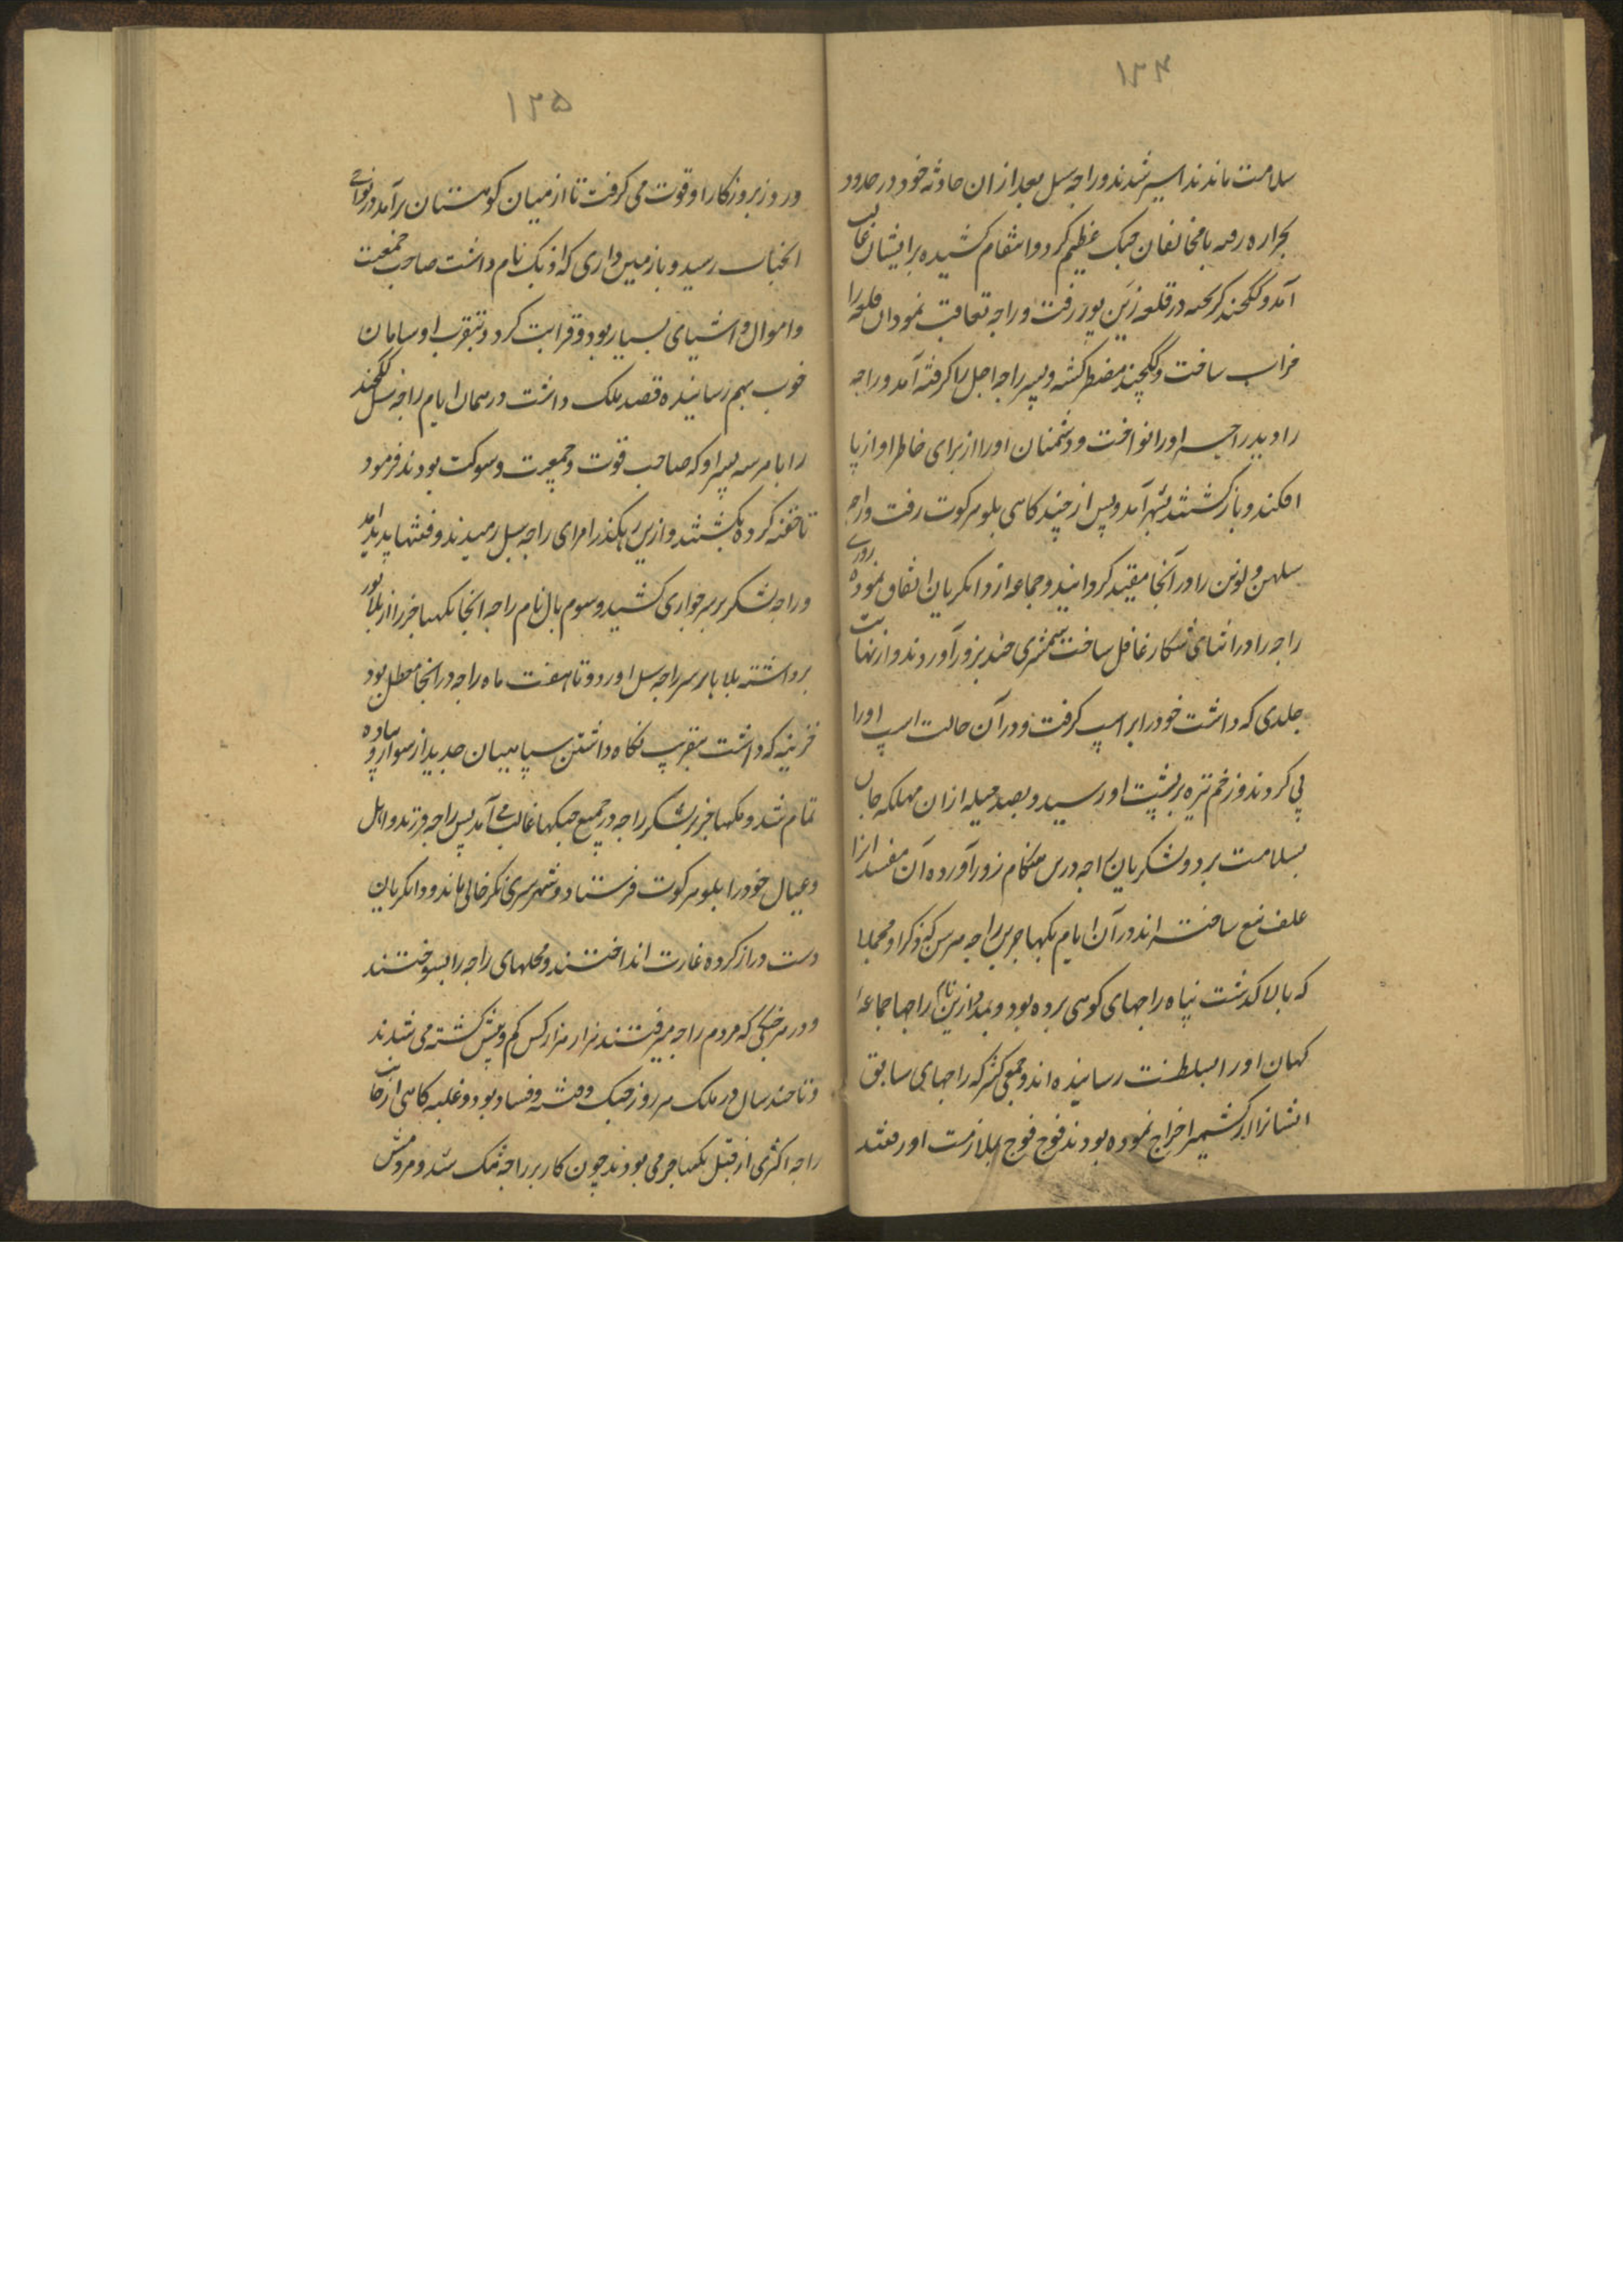 ۱۳۴
سلامت ماندند اسیر شدند و راجه سل بعد ازان حادثه خود در حدود
بجراره رفه با مخالفان جنک عظیم کرد و انتقام کشیده بر ایشان غالب
آمد و ککچند کریخته در قلعه زین پور رفت و راجه تعاقب نمود ان قلعه را
خراب ساخت و ککچند مضطر کشته و پسر راجه اجل را کرفته آمد و راجه
را دید راجه اورا نواخت و دشمنان اورا از برای خاطر او از پا
افکند و باز کشتند بشهر آمد و پس از چند کاهی بلوهرکوت رفت و راجه
سلهن و لوتن را در آنجا مقید کردانید و جماعه از دانکریان اتفاق نموده روزی
راجه را در اثنای شکار غافل ساخت شمشیری چند بزور آوردند و از نهایت
جلدی که داشت خود را بر اسپ کرفت و در آن حالت اسپ اورا
پی کردند و زخم نیزه بر پشت او رسید و بصد حیله ازان مهلکه جان
بسلامت برد و لشکریان راجه درین هنکام زور آورده آن مفسدانرا
علف تیغ ساخته اند و در آن ایام بکهاجر بن راجه هرس که ذکر او مجملا
که بالا کذشت پناه راجهای کوهی برده بود و بمدد ازین نام راجها جماعه
کهان اورا بسلطنت رسانیده اند و جمعی کثیر که راجهای سابق
ایشانرا از کشمیر اخراج نموده بودند فوج فوج بملازمت او رفتند
۱۳۵
و روز بروز کار او قوت می کرفت تا از میان کوهستان برآمد در نواحی
انجناب رسید و باز میین داری که اذبک نام داشت صاحب جمعیت
و اموال و اشیای بسیار بود و قرابت کرد و بتقرب او سامان
خوب بهم رسانیده قصد ملک داشت در همان ایام راجه سل ککچند
را با هر سه پسر او که صاحب قوت و جمعیت و شوکت بودند فرمود
تا خفه کرده بکشتند و ازین رهکذر امرای راجه سل رمیدند و فتنها پدید امد
و راجه لشکر بر سر جواری کشید و سوم پال نام راجه انجا بکهاجر را از بلاپور
برداشته بلا با بر سر راجه سل اورد و تا هفت ماه راجه در انجا معطل بود
خزینه که داشت بتقرب نکاه داشتن سپاهیان جدید از سوار و پیاده
تمام شد و بکهاجر بر لشکر راجه در جمیع جنکها غالب می آمد پس راجه فرزند و اهل
و عیال خود را بلوهرکوت فرستاد و شهر سری نکر خالی ماند و دانکریان
دست دراز کرده غارت انداختند و محلهای راجه را بسوختند
و در هر جنکی که مردم راجه میرفتند هزار هزار کس کم و بیش کشته می شدند
و تا چند سال در ملک هر روز جنک و فتنه و فساد بود و غلبه کاهی از جانب
راجه اکثری از قبل بکهاجر می بودند چون کار بر راجه تنک شد و مردمش